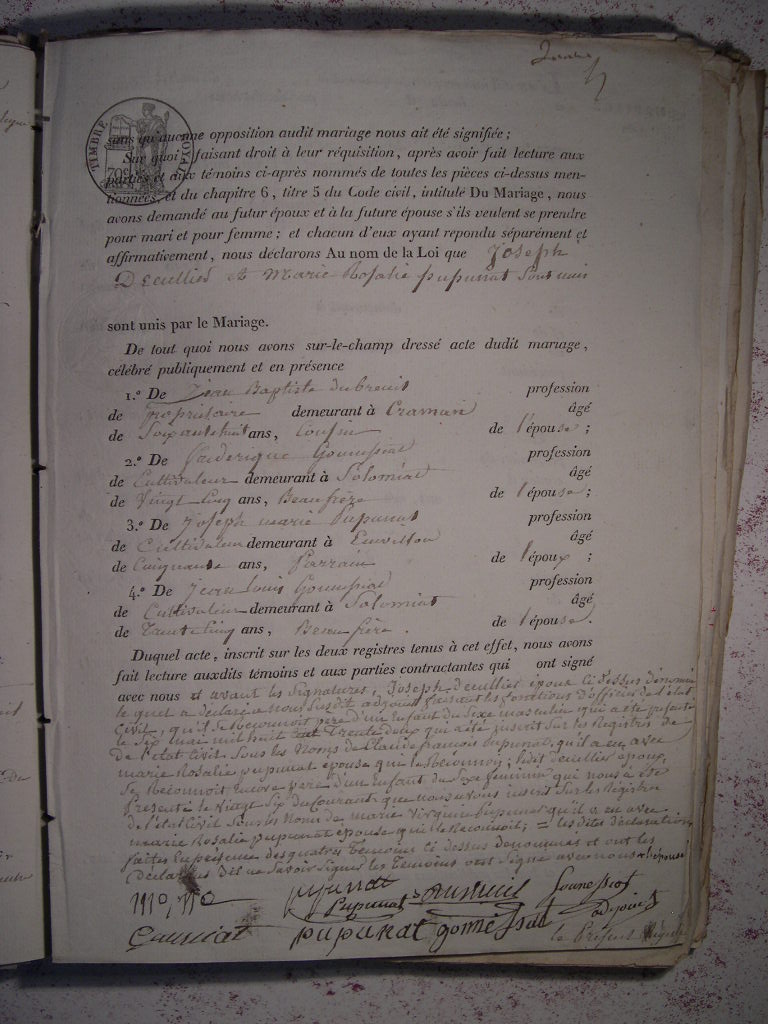 TIMBRE ROYAL
70c
sans qu'aucune opposition audit mariage nous ait été signifiée ;
Sur quoi, faisant droit à leur réquisition, après avoir fait lecture aux
parties et aux témoins ci-après nommés de toutes les pièces ci-dessus men-
tionnées, et du chapitre 6, titre 5 du Code civil, intitulé Du Mariage, nous
avons demandé au futur époux et à la future épouse s'ils veulent se prendre
pour mari et pour femme ; et chacun d'eux ayant repondu séparément et
affirmativement, nous déclarons Au nom de la Loi que Joseph
Decullied et Marie Rosalie pupunat
sont unis par le Mariage.
De tout quoi nous avons sur-le-champ dressé acte dudit mariage,
célébré publiquement et en présence
1.º De Jean Baptiste dubreuil profession
de proprietaire demeurant à Cramari âgé
de Soixantehuit ans, Cousin de l'épouse ;
2.º De frederique Gounssiat profession
de Cultivateur demeurant à Solomiat âgé
de Vingt Cinq ans, Beaufrere de l'épouse ;
3.º De Joseph marie Pupunat profession
de Cultivateur demeurant à âgé
de Cinquante ans, Parrain de l'époux ;
4.º De Jean Louis Gounssiat profession
de Cultivateur demeurant à Solomiat âgé
de Trente Cinq ans, Beau frère. de l'épouse.
Duquel acte, inscrit sur les deux registres tenus à cet effet, nous avons
fait lecture auxdits témoins et aux parties contractantes qui ont signé
avec nous et avant les Signatures, Joseph decullied époux Ci dessus dénommé
lequel a déclaré a nous Susdit adjoint fesant les fonctions d'officier de l'état
Civil, qu'il Se Reconnoit pere d'un Enfant du Sexe masculin qui a été
le Six mai mil huit cent Trente deux qui a été inscrit Sur les Registres de
de l'état Civil Sous les Noms de Claude francois Pupunat, qu'il a eu avec
marie Rosalie pupunat épouse qui le Reconnoit ; ledit decullier époux,
Se Reconnoit Encore pere d'un Enfant du Sexe feminin qui nous a été
Présenté le Vingt Six du Courant que nous avons inscrit Sur les Registres
de l'état Civil Sous les Noms de marie Virginie Pupunat qu'il a eu avec
marie Rosalie pupunat épouse qui le Reconnoit ; les dites déclarations
faites En présence des quatre Temoins Ci dessus denommés et ont les
Déclarans Dit ne Savoir Signer les Temoins ont Signé avec nous
pupunat
Pupunat
pupunat